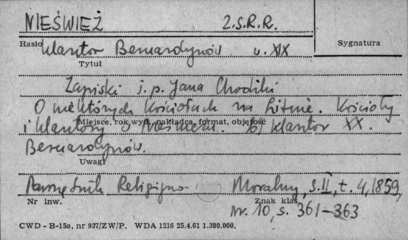 NIEŚWIEŻ Z.S.R.R.
Hasło klasztor Bernardynów w. XIX Sygnatura
Tytuł
Zapiski i.p. Jana Chodźki
O niektórych kościołach na Litwie. Kościoły
i klasztory w Nieświeżu. b/ klasztor XX.
Miejsce, rok wyd., nakładca, format, objętość
Bernardynów.
Uwagi
Pamiętnik Religijno Moralny, s. II, t. 4, 1859,
Nr inw. Znak klas.
nr. 10, s. 361-363
CWD - B-15a, nr 937/ZW/P. WDA 1216 25.4.61 1.380.000.